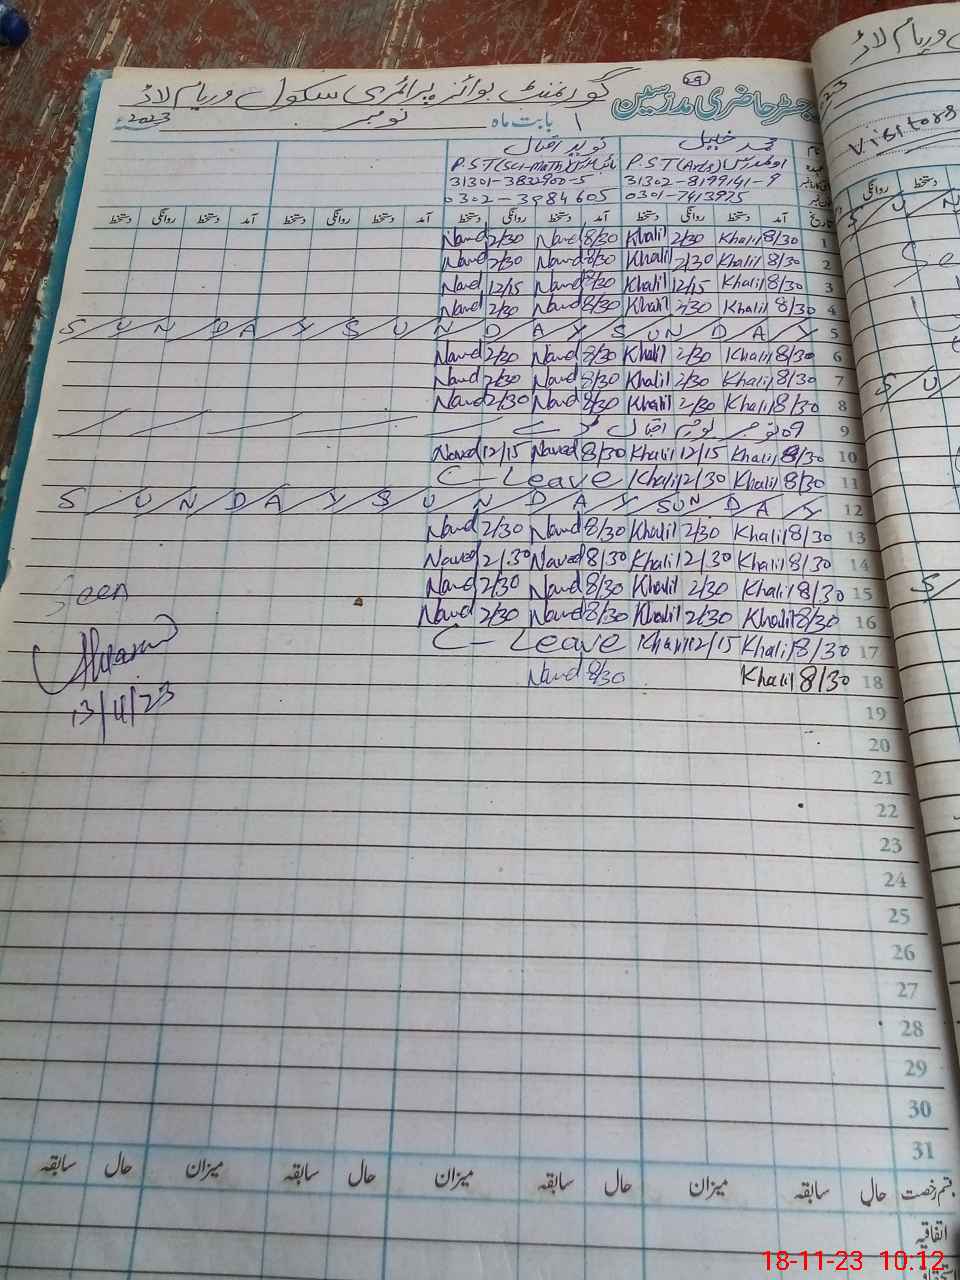 گورنمنٹ بوائز پرائمری سکول وریام لاڑ
رجسٹر حاضری مدرسین
29
بابت ماہ نومبر 2023
محمد خلیل نوید اقبال
P.S.T (Arts) P.S.T (Sci-Math)
31302-8199141-9 31301-3832900-5
0301-7413975 0302-3984605
تاریخ آمد دستخط روانگی دستخط آمد دستخط روانگی دستخط آمد دستخط روانگی دستخط آمد دستخط روانگی دستخط
1 8/30 Khalil 2/30 Khalil 8/30 Naved 2/30 Naved
2 8/30 Khalil 2/30 Khalil 8/30 Naved 2/30 Naved
3 8/30 Khalil 12/15 Khalil 8/30 Naved 12/15 Naved
4 8/30 Khalil 2/30 Khalil 8/30 Naved 2/30 Naved
5 S U N D A Y S U N D A Y S U N D A Y
6 8/30 Khalil 2/30 Khalil 8/30 Naved 2/30 Naved
7 8/30 Khalil 2/30 Khalil 8/30 Naved 2/30 Naved
8 8/30 Khalil 2/30 Khalil 8/30 Naved 2/30 Naved
9 09 نومبر یوم اقبال
10 8/30 Khalil 12/15 Khalil 8/30 Naved 12/15 Naved
11 8/30 Khalil 2/30 Khalil C-Leave
12 S U N D A Y S U N D A Y S U N D A Y
13 8/30 Khalil 2/30 Khalil 8/30 Naved 2/30 Naved
14 8/30 Khalil 2/30 Khalil 8/30 Naved 2/30 Naved
15 8/30 Khalil 2/30 Khalil 8/30 Naved 2/30 Naved
16 8/30 Khalil 2/30 Khalil 8/30 Naved 2/30 Naved
17 8/30 Khalil 12/15 Khalil C-Leave
18 8/30 Khalil 8/30 Naved
Seen
13/11/23
19
20
21
22
23
24
25
26
27
28
29
30
31
قسم رخصت حال سابقہ میزان حال سابقہ میزان حال سابقہ میزان حال سابقہ
اتفاقیہ
Visitors
18-11-23 10:12